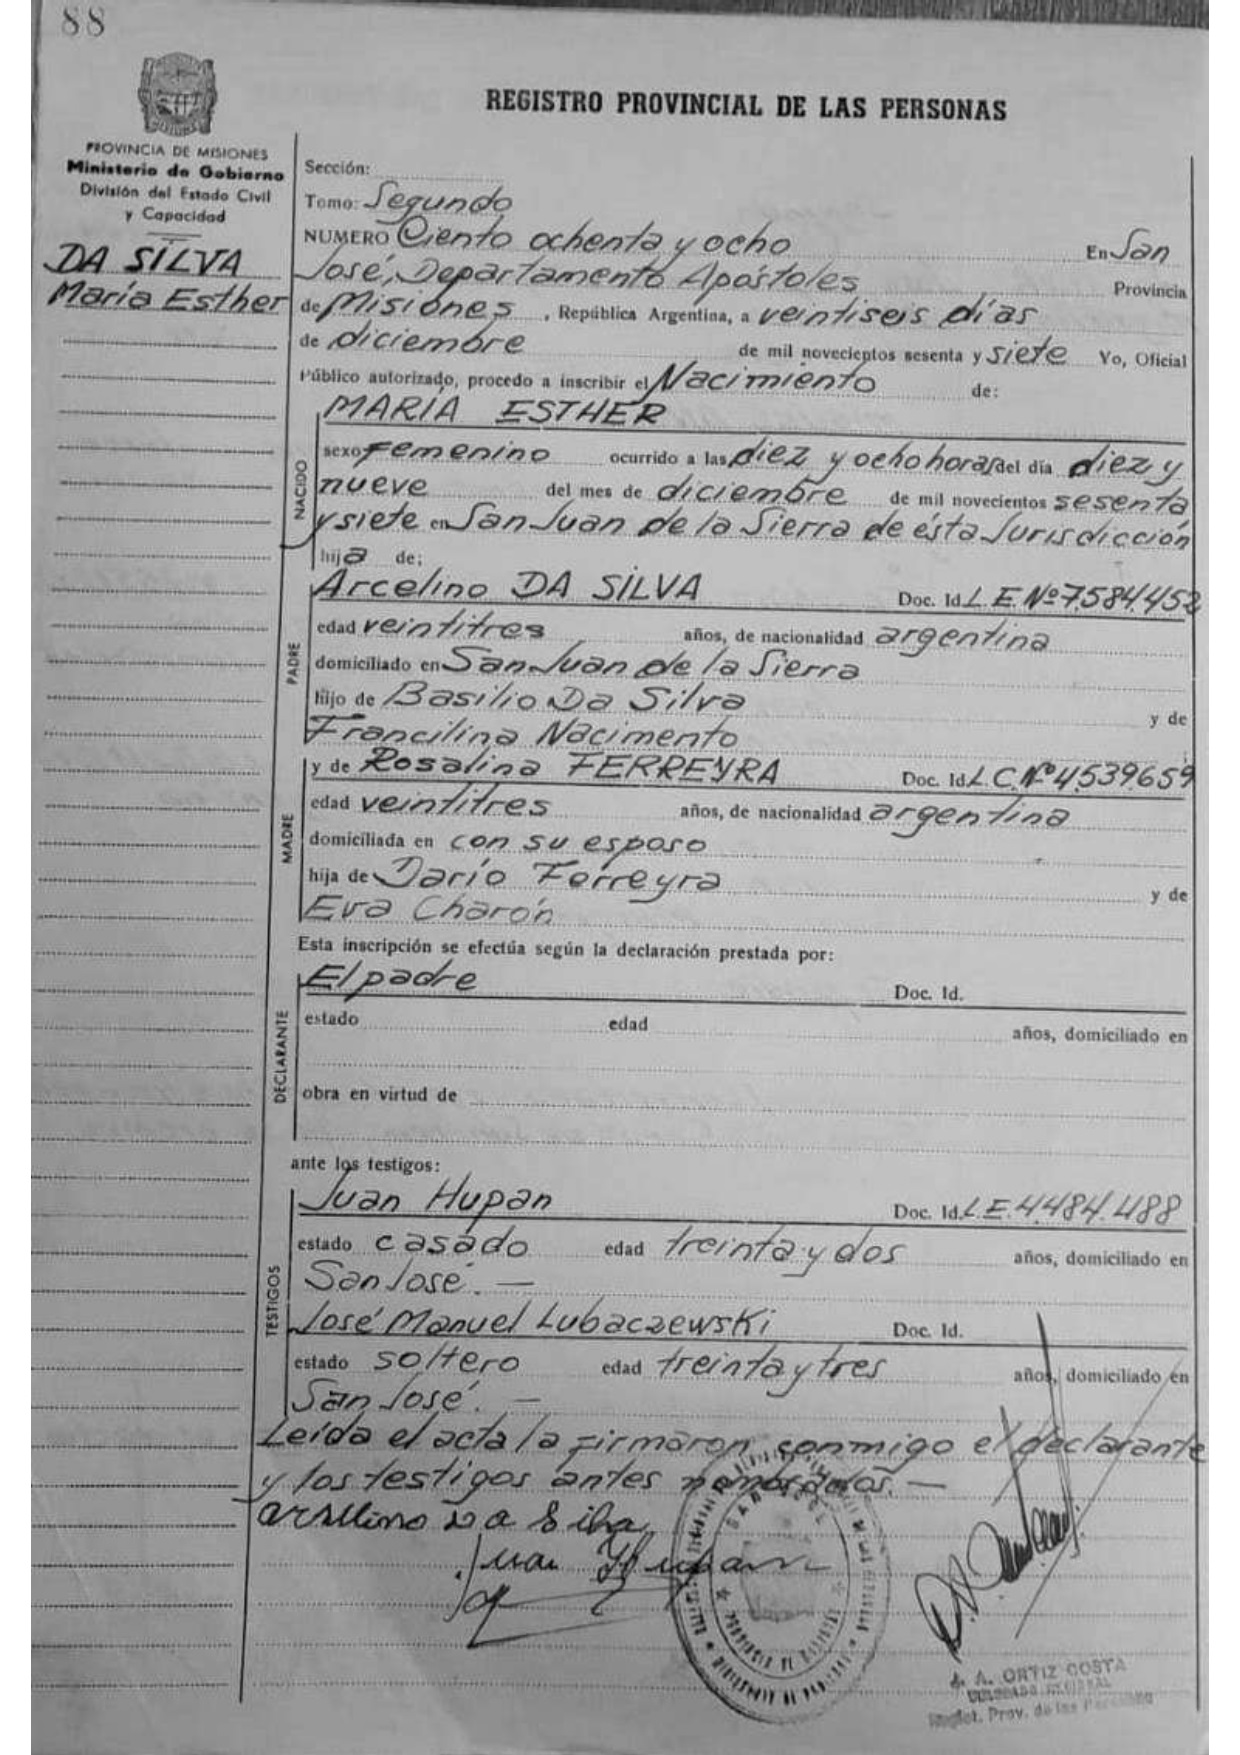 88
REGISTRO PROVINCIAL DE LAS PERSONAS
PROVINCIA DE MISIONES
Ministerio de Gobierno
División del Estado Civil
y Capacidad
DA SILVA
María Esther
Sección:
Tomo: Segundo
NUMERO Ciento ochenta y ocho En San
José, Departamento Apóstoles Provincia
de Misiones, República Argentina, a veintiseis días
de diciembre de mil novecientos sesenta y siete Yo, Oficial
Público autorizado, procedo a inscribir el Nacimiento de:
NACIDO
MARÍA ESTHER
sexo femenino ocurrido a las diez y ocho horas del día diez y
nueve del mes de diciembre de mil novecientos sesenta
y siete en San Juan de la Sierra de ésta Jurisdicción
hija de:
PADRE
Arcelino DA SILVA Doc. Id. L.E. Nº 7584.452
edad veintitres años, de nacionalidad argentina
domiciliado en San Juan de la Sierra
hijo de Basilio Da Silva y de
Francilina Nacimento
MADRE
y de Rosalina FERREYRA Doc. Id. L.C. Nº 4539659
edad veintitres años, de nacionalidad argentina
domiciliada en con su esposo
hija de Darío Ferreyra y de
Eva Charón
Esta inscripción se efectúa según la declaración prestada por:
DECLARANTE
El padre Doc. Id.
estado edad años, domiciliado en
obra en virtud de
ante los testigos:
TESTIGOS
Juan Hupan Doc. Id. L.E. 4484.488
estado casado edad treinta y dos años, domiciliado en
San José. —
José Manuel Lubaczewski Doc. Id.
estado soltero edad treinta y tres años, domiciliado en
San José. —
Leída el acta la firmaron, conmigo el declarante
y los testigos antes nombrados. —
Da Silva
Juan Hupan
SAN JOSE
PROVINCIA DE MISIONES
A. ORTIZ COSTA
Regist. Prov. de las Personas